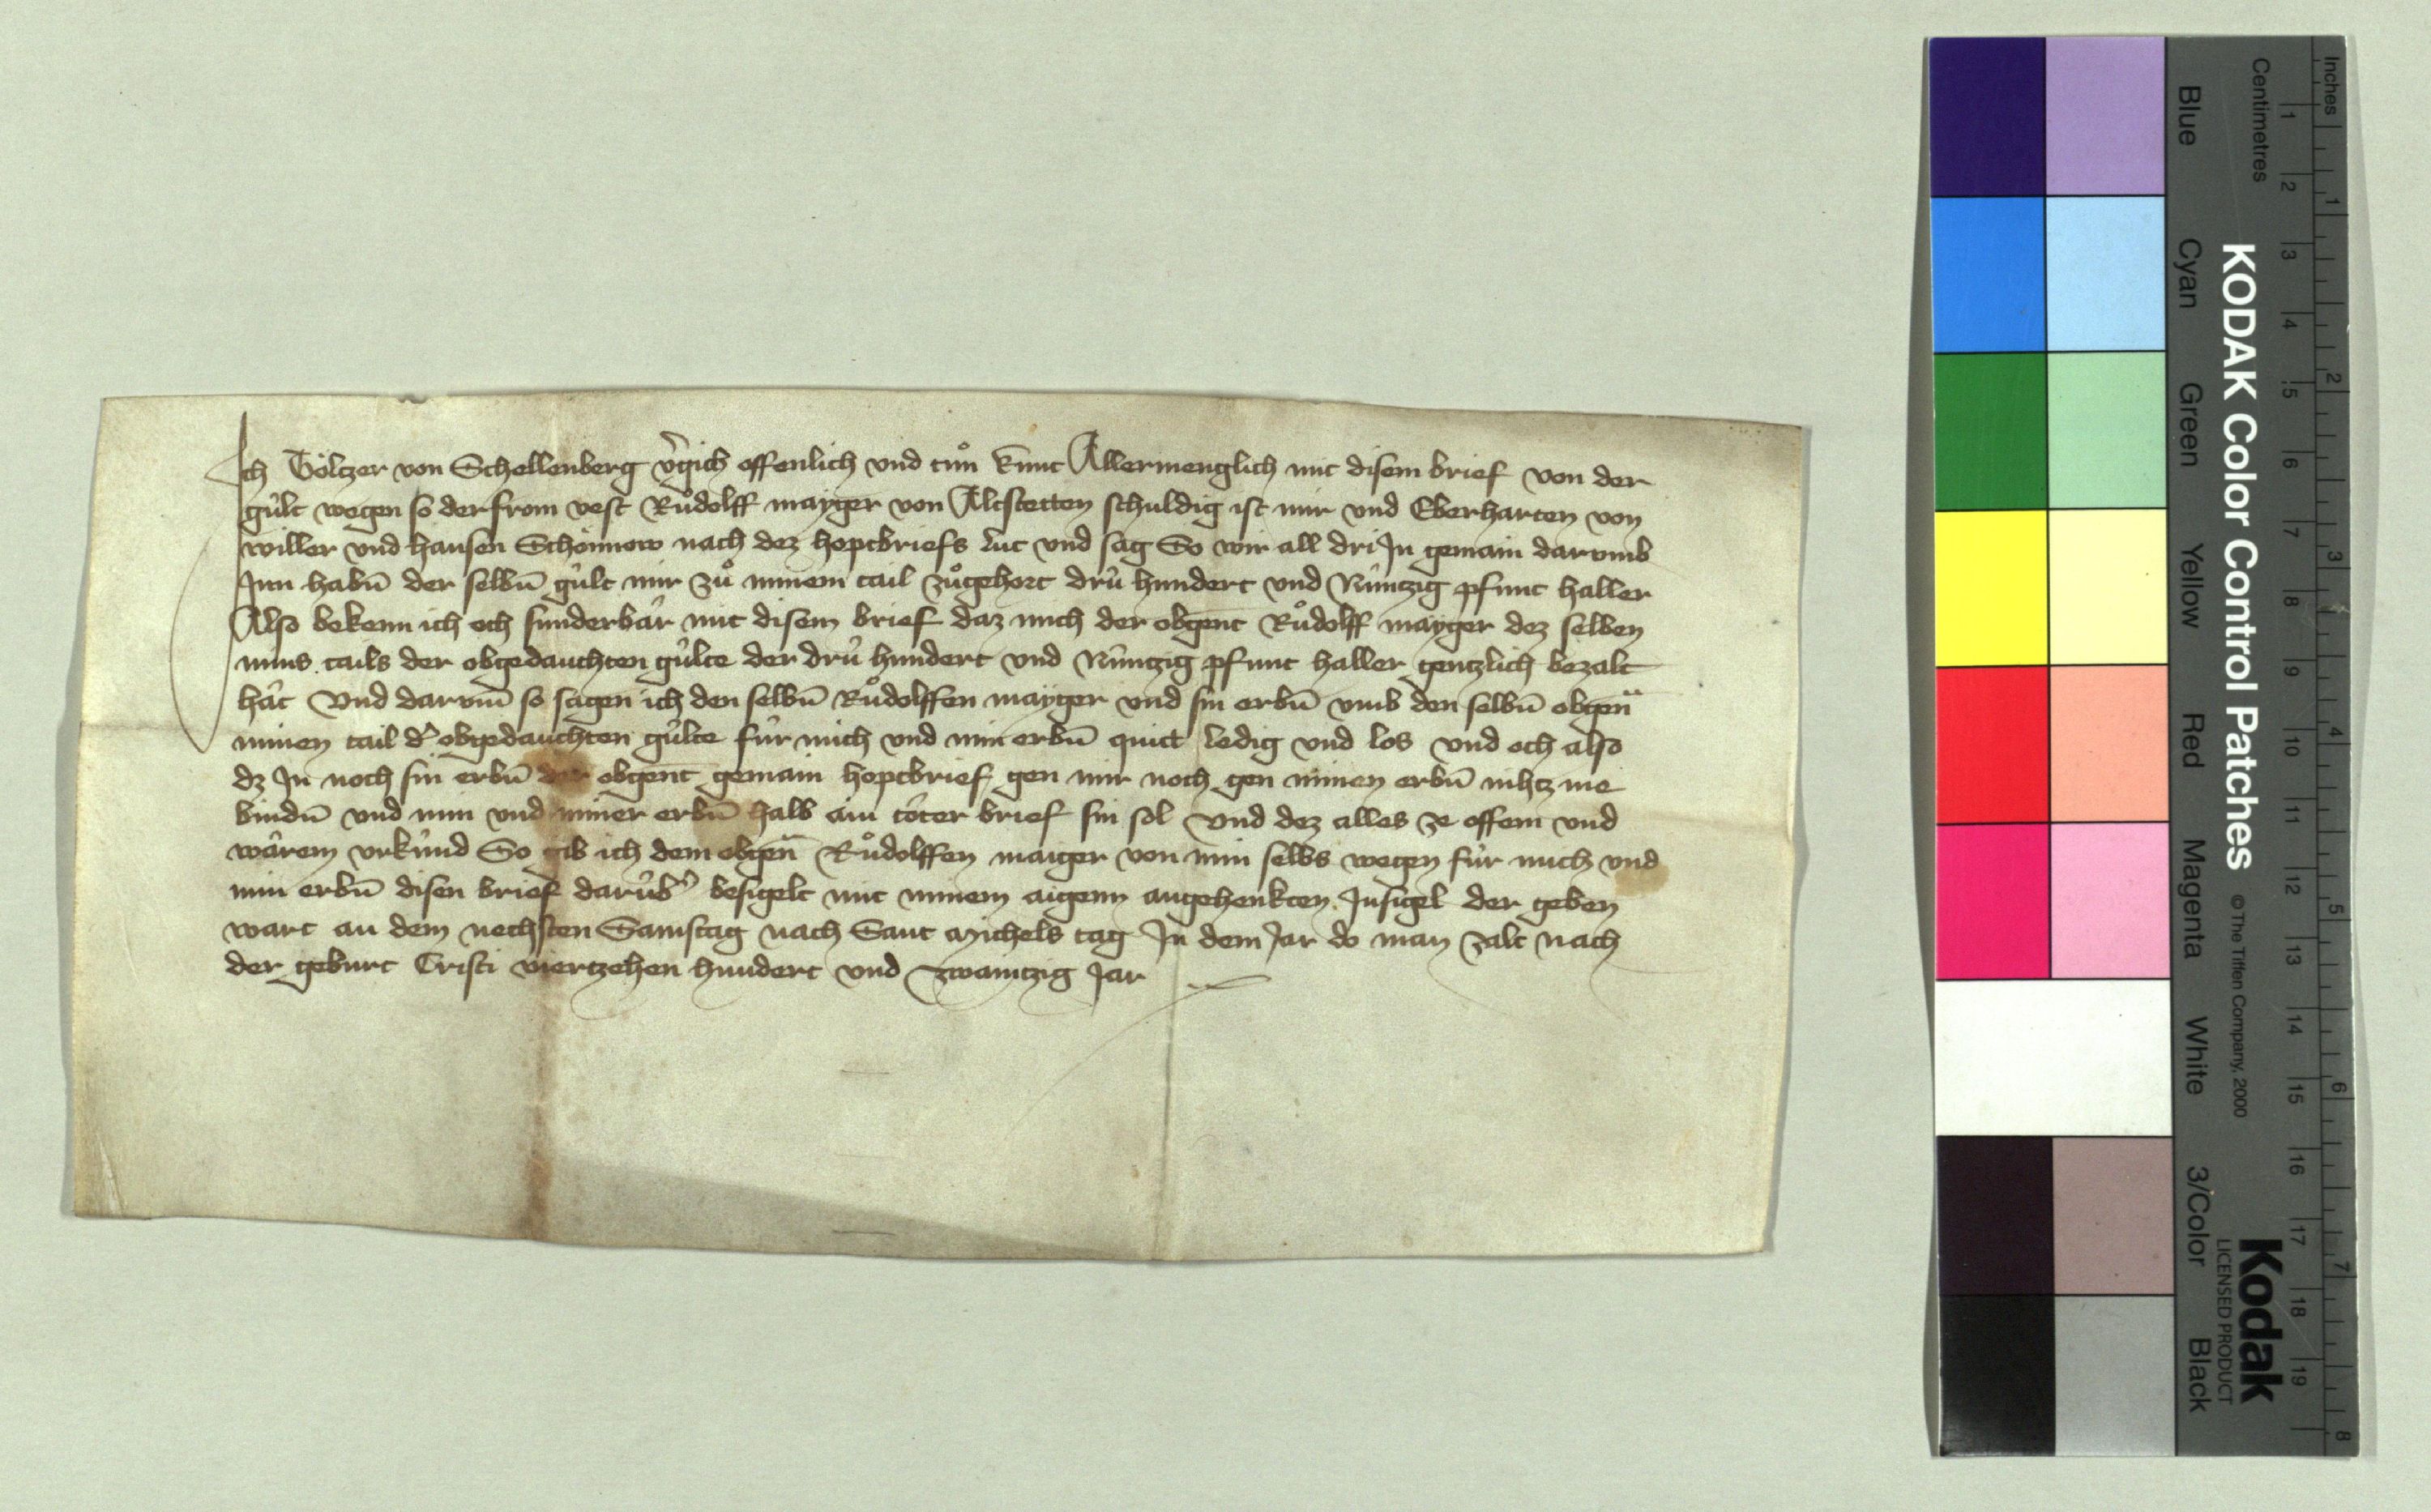 Ich Töltzer von Schellenberg v̾gich offenlich vnd tuͦn kunt Allermenglich mit disem brief von der
gült wegen so der from vest Ruͦdolff mayger von Altstetten schuldig ist mir vnd Eberharten von
willer vnd hansen Schönnow nach dez hoptbriefs lut vnd sag So wir all dri Jn gemain darvmb
Jnn habn̄ der selbn̄ gült mir zuͦ minem tail zuͦgehort drü hundert vnd Nüntzig pfunt haller
Also bekenn ich och sunderbar mit disem brief daz mich der obgen̄t Ruͦdolff mayger dez selben
mins tails der obgedauchten gülte der drü hundert vnd Nüntzig pfunt haller gentzlich bezalt
hat Vnd darvm̄ so sagen ich den selbn̄ Ruͦdolffen mayger vnd sin erbn̄ vmb den selbn̄ obgen̄
minen tail d̾ obgedauchten gülte für mich vnd min erbn̄ quict ledig vnd los vnd och also
dz Jn noch sin erbn̄ der obgen̄t gemain hoptbrief gen mir noch gen minen erbn̄ nihtz me
bindn̄ vnd min vnd miner erbn̄ halb ain toter brief sin sol Vnd dez alles ze offem vnd
warem vrkünd So gib ich dem obgen̄ Ruͦdolffen maiger von min selbs wegen für mich vnd
min erbn̄ disen brief darüb̾ besigelt mit minem aigenn angehenkten Jnsigel der geben
wart an dem nechsten Samstag nach Sant Michels tag Jn dem Jar do man zalt nach
der geburt Cristi viertzehen hundert vnd zwaintzig Jar
KODAK Color Control Patches © The Tiffen Company, 2000
Kodak
LICENSED PRODUCT
Inches 1 2 3 4 5 6 7 8
Centimetres 1 2 3 4 5 6 7 8 9 10 11 12 13 14 15 16 17 18 19
Blue Cyan Green Yellow Red Magenta White 3/Color Black